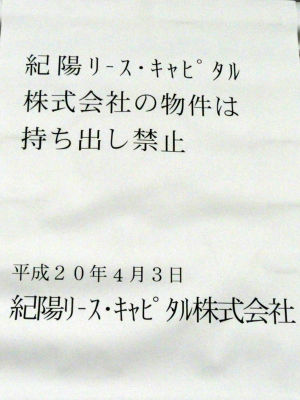 紀陽ﾘｰｽ・ｷｬﾋﾟﾀﾙ
株式会社の物件は
持ち出し禁止
平成２０年４月３日
紀陽ﾘｰｽ・ｷｬﾋﾟﾀﾙ株式会社